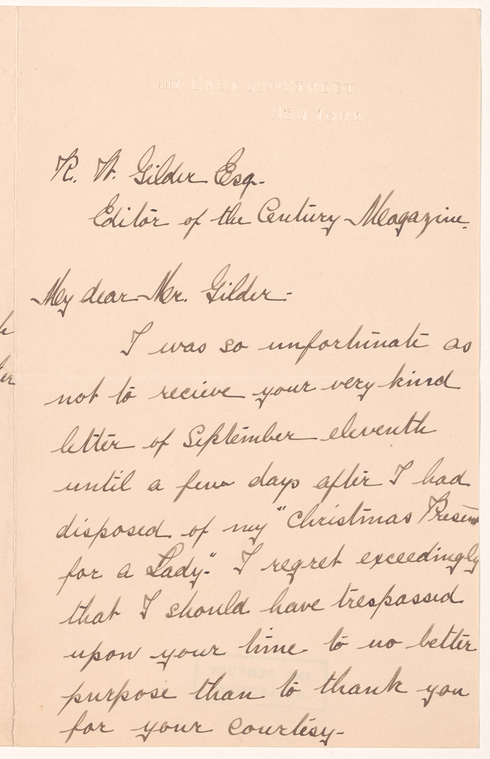 NEW YORK
R. W. Gilder Esq.
Editor of the Century Magazine.
My dear Mr. Gilder:
I was so unfortunate as
not to recieve your very kind
letter of September eleventh
until a few days after I had
disposed of my "Christmas Present
for a Lady". I regret exceedingly
that I should have trespassed
upon your time to no better
purpose than to thank you
for your courtesy-